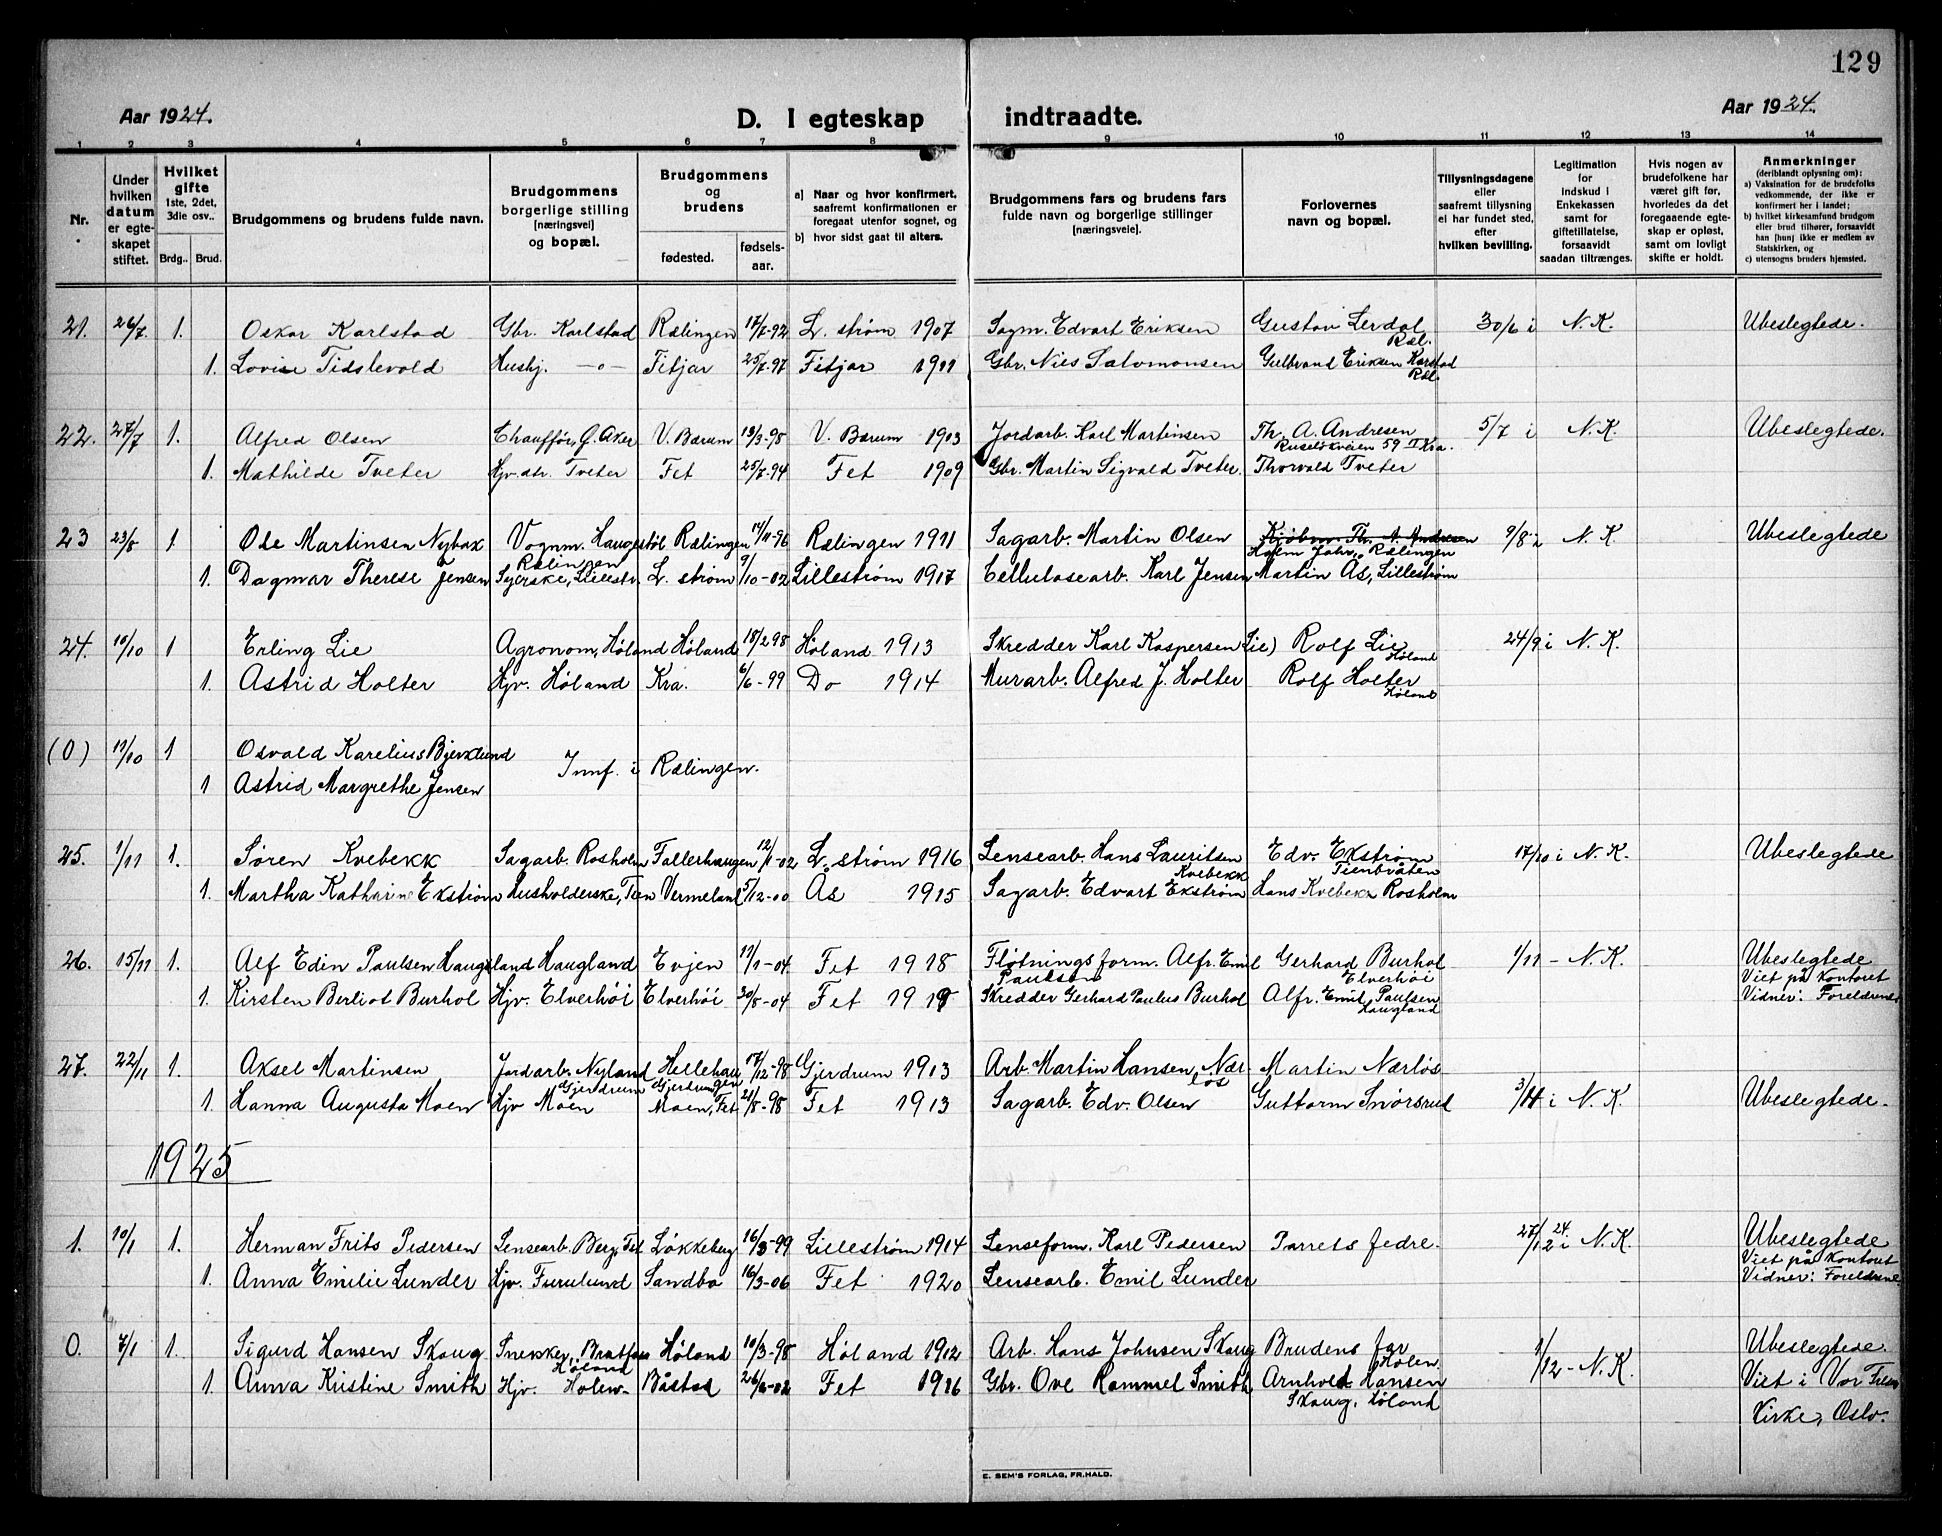 129
Aar 1924.
D. I egteskap indtraadte.
Aar 1924.
1 2 3 4 5 6 7 8 9 10 11 12 13 14
Nr.
Under hvilken datum er egte-skapet stiftet.
Hvilket gifte 1ste, 2det, 3die osv..
Brdg.. Brud.
Brudgommens og brudens fulde navn.
Brudgommens borgerlige stilling [næringsvei] og bopæl.
Brudgommens og brudens
fødested.
fødsels-aar.
a) Naar og hvor konfirmert, saafremt konfirmationen er foregaat utenfor sognet, og
b) hvor sidst gaat til alters.
Brudgommens fars og brudens fars fulde navn og borgerlige stillinger [næringsveie].
Forlovernes navn og bopæl.
Tillysningsdagene eller saafremt tillysning ei har fundet sted, efter hvilken bevilling.
Legitimation for indskud i Enkekassen samt for giftetillatelse, forsaavidt saadan tiltrænges.
Hvis nogen av brudefolkene har været gift før, hvorledes da det foregaaende egte-skap er opløst, samt om lovligt skifte er holdt.
Anmerkninger (deriblandt oplysning om):
a) Vaksination for de brudefolks vedkommende, der ikke er konfirmert her i landet;
b) hvilket kirkesamfund brudgom eller brud tilhører, forsaavidt han [hun] ikke er medlem av Statskirken, og
c) utensogns bruders hjemsted.
21. 26/7. 1. Oskar Karlstad Gbr. Karlstad Rælingen 17/8-92 L. strøm 1907 Sagm. Edvart Eriksen Gustav Lerdal Ræl. 30/6 i N.K. Ubeslegtede.
1. Lovise Tidslevold Hushj. -o- Fitjar 25/7-97 Fitjar 1911 Gbr. Nils Salomonsen Gulbrand Eriksen Karstad Ræl.
22. 27/7 1. Alfred Olsen Chauffør, Ø. Aker V. Bærum 13/3-98 V. Bærum 1913 Jordarb. Karl Martinsen Th. A. Andresen Ruseløkveien 59 II Kra. 5/7 i N.K. Ubeslegtede.
1. Mathilde Tveter Hjv. dtr. Tveter Fet 25/7-94 Fet 1909 Gbr. Martin Sigvald Tveter. Thorvald Tveter
23 23/8 1 Ole Martinsen Nybak Vognm. Haugestøl Rælingen Rælingen 14/11-96 Rælingen 1911 Sagarb. Martin Olsen Kjøbm. Th. A. Andresen Holm Johr., Rælingen 9/8 i N.K. Ubeslegtede
1. Dagmar Therese Jensen Syerske, Lillestr. L. strøm 9/10-02 Lillestrøm 1917 Cellulosearb. Karl Jensen Martin Ås, Lillestrøm
24. 10/10 1 Erling Lie Agronom, Høland Høland 18/2 98 Høland 1913 Skredder Karl Kaspersen (Lie) Rolf Lie Høland 24/9 i N.K.
1. Astrid Holter Hjv. Høland Kra. 6/6-99 Do 1914 Murarb. Alfred J. Holter Rolf Holter Høland
(0) 11/10 1 Osvald Karelius Bjerklund
Innf. i Rælingen.
1 Astrid Margrethe Jensen
25. 1/11 1. Søren Kvebekk Sagarb. Rosholm Tallerhaugen 12/1-02 L. strøm 1916 Lensearb. Hans Lauritsen Kvebekk Edv. Ekstrøm Tienbråten 17/10 i N.K. Ubeslegtede
1. Martha Katharine Ekstrøm Husholderske, Tien Vermeland 5/12-00 Ås 1915 Sagarb. Edvart Ekstrøm Hans Kvebekk Rosholm
26. 15/11 1. Alf Edin Paulsen Haugland Haugland Evjen 11/1-04. Fet 1918 Fløtningsform. Alfr. Emil Paulsen Gerhard Burhol Elverhøi 1/11 - N.K. Ubeslegtede Viet på kontoret
1. Kirsten Berliot Burhol Hjv. Elverhøi Elverhøi 30/8-04 Fet 1919 Skredder Gerhard Paulus Burhol Alfr. Emil Paulsen Haugland Vidner: Foreldrene
27. 22/11 1. Aksel Martinsen Jordarb. Nyland Gjerdrum Hellehaugen Gjerdrum 17/12-98 Gjerdrum 1913 Arb. Martin Hansen, Nærløs Martin Nærløs
1. Hanna Augusta Moen Hjv Moen Moen, Fet 21/8-98 Fet 1913 Sagarb. Edv. Olsen Guttorm Snørsrud 3/11 i N.K. Ubeslegtede.
1925
1. 10/1 1. Herman Frits Pedersen Lensearb. Berg Løkkeberg 16/3-99 Lillestrøm 1914 Lenseform. Karl Pedersen Parrets fedre. 27/12 24. i N.K. Ubeslegtede Viet på kontoret
1. Anna Emilie Lunder Hjv. Furulund Sandbo 16/3-06 Fet 1920 Lensearb. Emil Lunder Vidner: Foreldrene
0. 7/1 1. Sigurd Hansen Skaug Snekker, Bratfoss Høland Høland 10/3-98 Høland 1912 Arb. Hans Johnsen Skaug Brudens far Holen. 1/12 - N.K. Ubeslegtede.
1. Anna Kristine Smith Hjv. Holen Båstad 26/6-02 Fet 1916 Gbr. Ove Rammel Smith Arnholdt Hansen Skaug, Høland Viet i Vor Frelsers Kirke, Oslo.
E. SEM'S FORLAG, FR.HALD.